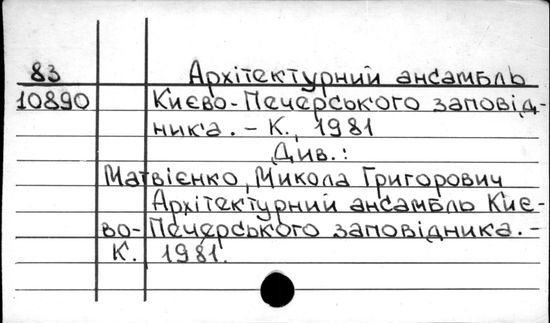 83 Архітектурний ансамбль
10890 Києво-Печерського заповід-
ника. - К., 1981
Див.:
Матвієнко, Микола Григорович
Архітектурний ансамбль Киє-
во-Печерського заповідника. -
К. 1981.